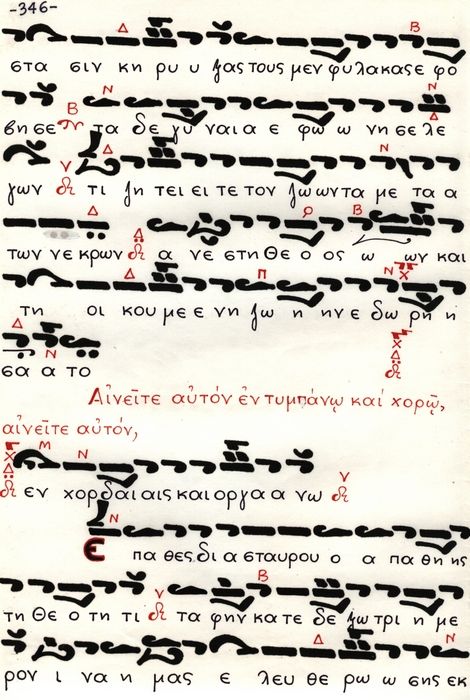 -346-
στα σιν κη ρυ υ ξας τους μεν φυλακας ε φο
βη σε τα δε γύ ναι α ε φω ω νη σε λε
γων τι ζη τει ει τε τον ζω ων τα με τα α
των νε κρων α νε στη Θε ο ος ω ων και
τη οι κου με ε νη ζω η ην ε δω ρη η
σα α το
Αἰνεῖτε αὐτόν ἐν τυμπάνῳ καί χορῷ,
αἰνεῖτε αὐτόν,
εν χορδαι αις και οργα α νω
Ε πα θες δι α σταυρου ο α πα θη ης
τη Θε ο τη τι τα φην κα τε δε ζω τρι η με
ρον ι να η μας ε λευ θε ρω ω σης εκ